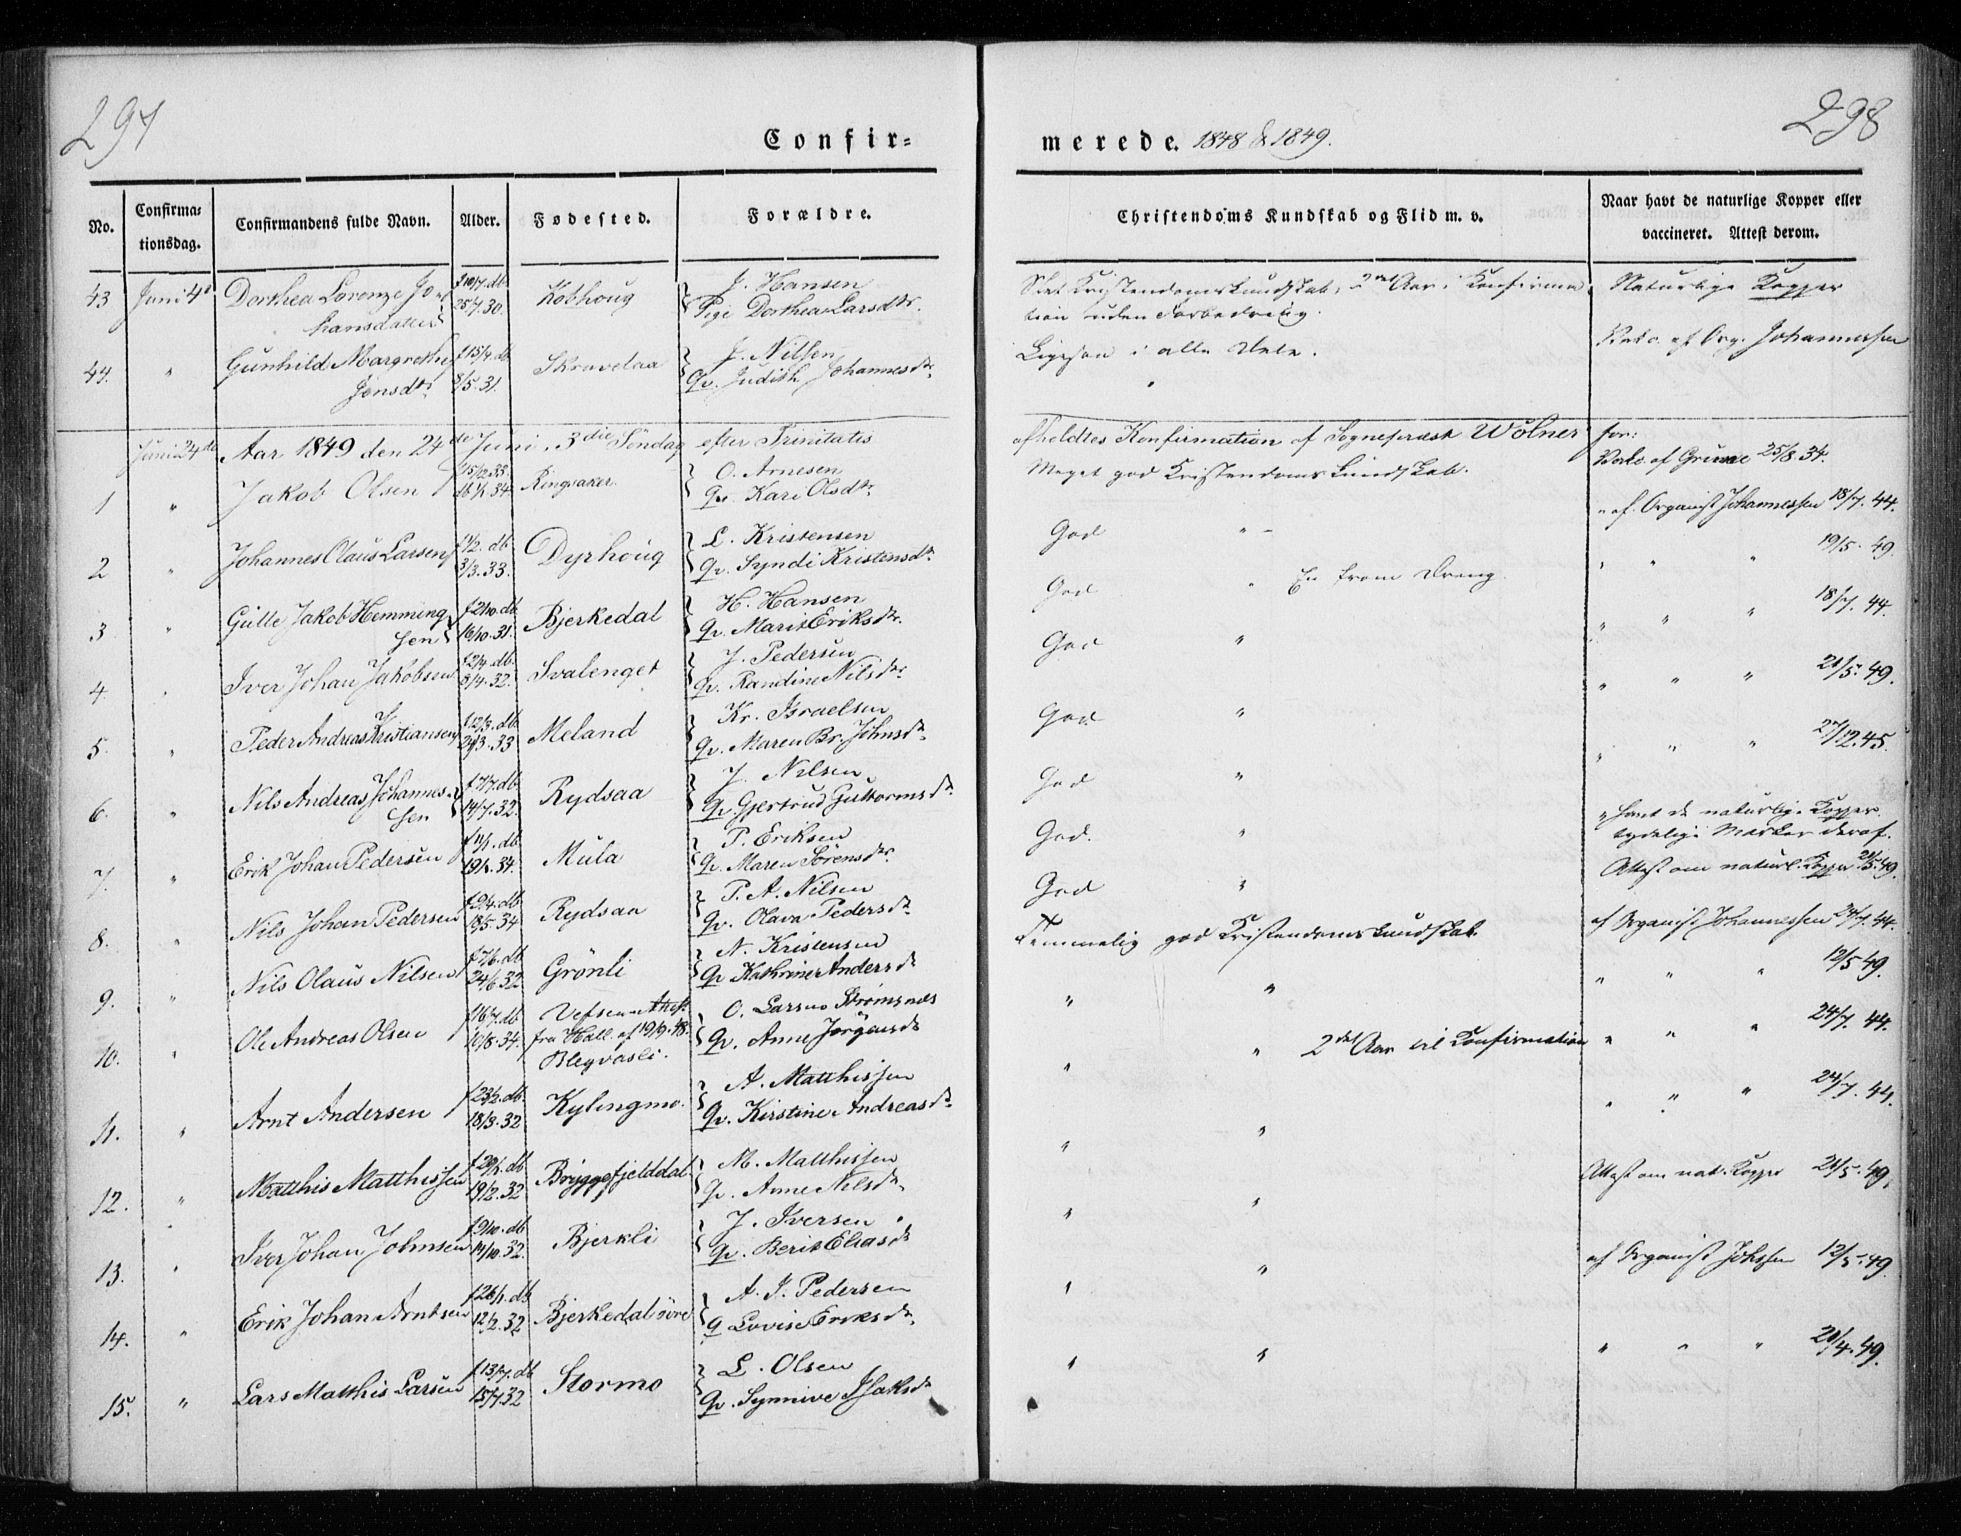 297
298
Confir-
merede. 1848 & 1849.
No.
Confirma-
tionsdag.
Confirmandens fulde Navn.
Alder.
Fødested.
Forældre.
Christendoms Kundskab og Flid m. v.
Naar havt de naturlige Kopper eller
vaccineret. Attest derom.
43 Juni 4de Dorthea Lorenze Jo-
hansdatter f 10/7. db 25/7. 30. Kobhoug J. Hansen
Pige Dorthea Larsdtr.
Slet Kristendomskundskab, 2det Aar i Konfirma-
tion uden Forbedring. Naturlige Kopper
44. " Gunhild Margrethe
Jensdtr. f 15/4 db 8/5. 31. Skravelaa J. Nilsen
Qv. Judith Johannesdtr.
Ligesaa i alle Dele. Vac. af Org. Johannessen
Juni 24de Aar 1849 den 24de Juni, 3die Søndag efter Trinitatis
afholdtes Konfirmation af Sognepræst Wolner for:
1 " Jakob Olsen f 15/12 33. db 1/1. 34. Ringsaker. O. Arnesen
Qv. Kari Olsdtr.
Meget god Kristendomskundskab. Vac. af Grime 25/8. 34.
2 " Johannes Olaus Larsen f 1/2. db 3/3. 33. Dyrhoug L. Kristensen
Qv. Syndi Kristensdtr.
God " " af Organist Johannessen 18/7. 44.
3 " Gulle Jakob Hemming-
sen f 2/10. db 16/10. 31. Bjerkedal H. Hansen
Qv. Marit Eriksdtr.
God " En from Dreng. " " " 19/5. 49.
4. " Iver Johan Jakobsen f 2/4. db. 8/4. 32. Svalenget J. Pedersen
Qv. Randine Nilsdtr.
God " " " " 18/7. 44.
5. " Peder Andreas Kristiansen f 12/3. db. 24/3. 33 Meland Kr. Israelsen
Qv. Maren Br. Johnsdtr.
God " " " " 21/5. 49.
6. " Nils Andreas Johannes-
sen f 7/7. db 14/7. 32. Rydsaa J. Nilsen
Qv. Gjertrud Guttormsdtr.
God " " " " 27/12. 45.
7. " Erik Johan Pedersen f 4/1. db 19/1. 34. Mula P. Eriksen
Qv. Maren Sørensdtr.
God. " " havt de naturlige Kopper
tydelige Mærker deraf.
8. " Nils Johan Pedersen f 9/4. db 18/5. 34 Rydsaa P. A. Nilsen
Qv. Olava Pedersdtr.
God " Attest om naturl. Kopper 21/5. 49.
9. " Nils Olaus Nilsen f 7/6. db 24/6. 32 Grönli N. Kristensen
Qv Kathrine Andersdtr
Temmelig god Kristendomskundskab af Organist Johannessen 24/7. 44.
10. " Ole Andreas Olsen f 16/7. db 10/8. 34. Vefsen Attest
fra Hall af 19/9. 48.
Blegvasli. O. Larsen Strømsnæs
Qv. Anne Jørgensdtr
" " " " " 12/5 49.
11. " Arnt Andersen f 23/2. db. 18/3. 32 Kylingmo. A. Matthissen
Qv. Kirstine Andreasdtr
" " 2det Aar til Confirmation " " " 24/7. 44.
12. " Matthis Matthissen f 29/1. db 19/2. 32 Bryggefjelddal M. Matthissen
Qv. Anne Nilsdtr.
" " " " " 24/7. 44.
13. " Iver Johan Johnsen f 9/10. db 14/10. 32. Bjerkli J. Iversen
Qv. Berit Eliasdtr
" " Attest om nat. Kopper 21/5. 49.
14. " Erik Johan Arntsen f 26/1. db 12/2. 32 Bjerkedal øvre A. J. Pedersen
Q Lovise Eriksdtr.
" " af Organist Johssen 12/5. 49.
15. " Lars Matthis Larsen f 13/7. db 15/7. 32 Stormo L. Olsen
Qv. Synnive Isaksdtr
" " " " " 21/4. 49.